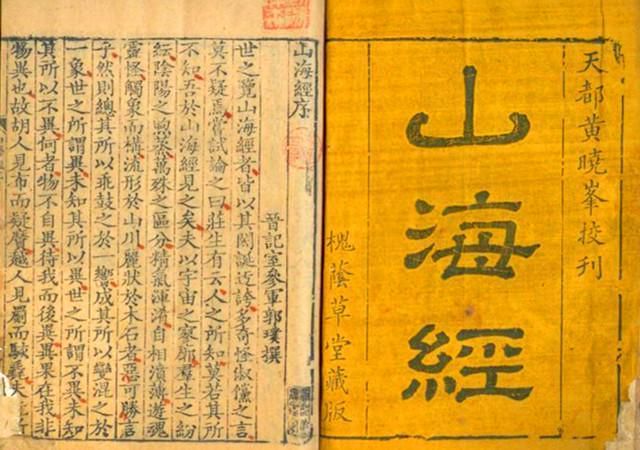 天都黃曉峯挍刊
山海經
槐蔭草堂藏版
山海經序
晉記室參軍郭璞撰
世之覽山海經者皆以其閎誕迂誇多奇怪俶儻之言
莫不疑焉嘗試論之曰莊生有云人之所知莫若其所
不知吾於山海經見之矣夫以宇宙之寥廓羣生之紛
紜陰陽之煦蒸萬殊之區分精氣渾淆自相濆薄遊魂
靈怪觸象而構流形於山川麗狀於木石者惡可勝言
乎然則總其所以乖鼓之於一響成其所以變混之於
一象世之所謂異未知其所以異世之所謂不異未知
其所以不異何者物不自異待我而後異異果在我非
物異也故胡人見布而疑黂越人見罽而駭毳夫